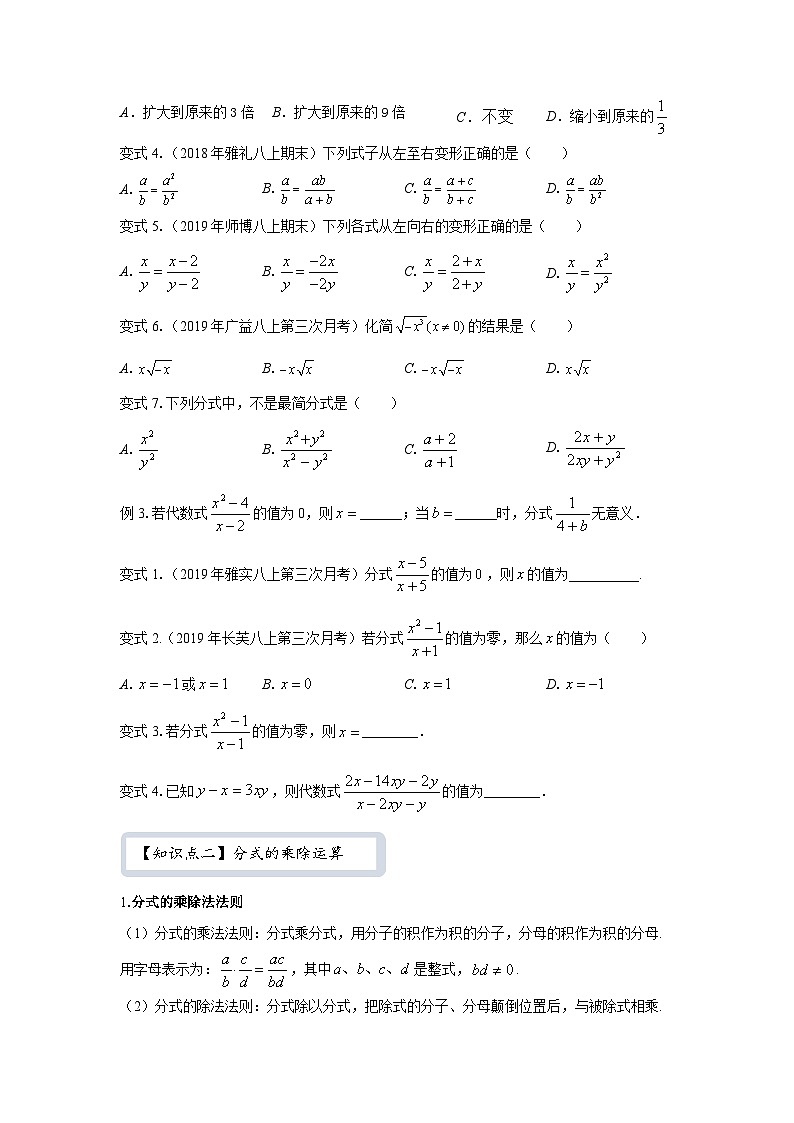 A．扩大到原来的 3 倍 B．扩大到原来的 9 倍 C．不变 D．缩小到原来的 $\frac{1}{3}$
变式 4.（2018 年雅礼八上期末）下列式子从左至右变形正确的是（ ）
A. $\frac{a}{b}=\frac{a^2}{b^2}$ B. $\frac{a}{b}=\frac{ab}{a+b}$ C. $\frac{a}{b}=\frac{a+c}{b+c}$ D. $\frac{a}{b}=\frac{ab}{b^2}$
变式 5.（2019 年师博八上期末）下列各式从左向右的变形正确的是（ ）
A. $\frac{x}{y}=\frac{x-2}{y-2}$ B. $\frac{x}{y}=\frac{-2x}{-2y}$ C. $\frac{x}{y}=\frac{2+x}{2+y}$ D. $\frac{x}{y}=\frac{x^2}{y^2}$
变式 6.（2019 年广益八上第三次月考）化简 $\sqrt{-x^3}(x\neq 0)$ 的结果是（ ）
A. $x\sqrt{-x}$ B. $-x\sqrt{x}$ C. $-x\sqrt{-x}$ D. $x\sqrt{x}$
变式 7.下列分式中，不是最简分式是（ ）
A. $\frac{x^2}{y^2}$ B. $\frac{x^2+y^2}{x^2-y^2}$ C. $\frac{a+2}{a+1}$ D. $\frac{2x+y}{2xy+y^2}$
例 3.若代数式 $\frac{x^2-4}{x-2}$ 的值为 0，则 $x=$ ______；当 $b=$ ______时，分式 $\frac{1}{4+b}$ 无意义．
变式 1.（2019 年雅实八上第三次月考）分式 $\frac{x-5}{x+5}$ 的值为 0，则 x 的值为__________.
变式 2.（2019 年长芙八上第三次月考）若分式 $\frac{x^2-1}{x+1}$ 的值为零，那么 x 的值为（ ）
A. $x=-1$ 或 $x=1$ B. $x=0$ C. $x=1$ D. $x=-1$
变式 3.若分式 $\frac{x^2-1}{x-1}$ 的值为零，则 $x=$ ________．
变式 4.已知 $y-x=3xy$，则代数式 $\frac{2x-14xy-2y}{x-2xy-y}$ 的值为________．
【知识点二】分式的乘除运算
1.分式的乘除法法则
（1）分式的乘法法则：分式乘分式，用分子的积作为积的分子，分母的积作为积的分母.
用字母表示为：$\frac{a}{b}\cdot\frac{c}{d}=\frac{ac}{bd}$，其中 a、b、c、d 是整式，$bd\neq 0$.
（2）分式的除法法则：分式除以分式，把除式的分子、分母颠倒位置后，与被除式相乘.